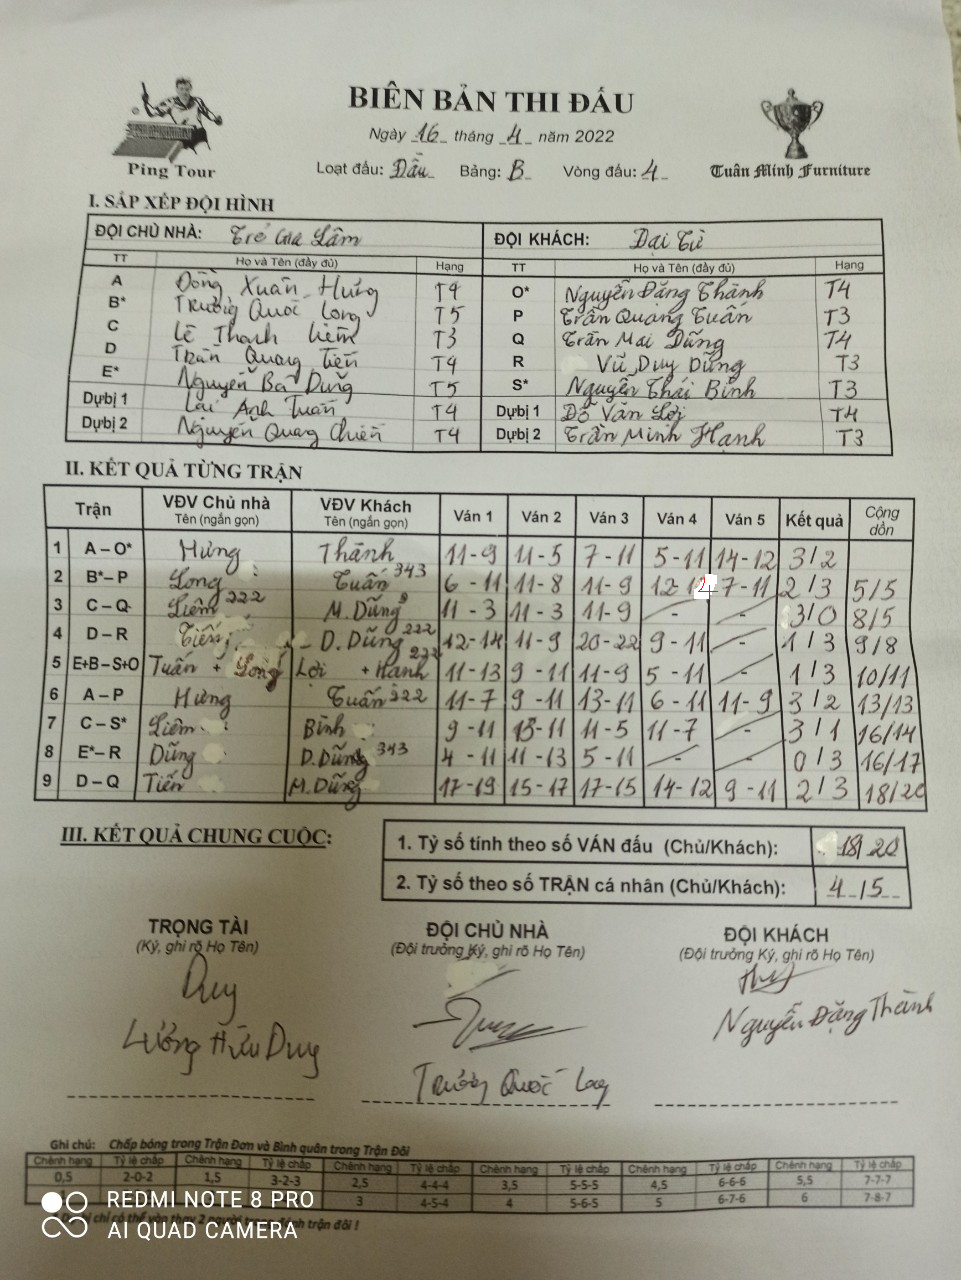 BIÊN BẢN THI ĐẤU
Ngày 16 tháng 4 năm 2022
Loạt đấu: Đầu Bảng: B Vòng đấu: 4
Ping Tour
Tuân Minh Furniture
I. SẮP XẾP ĐỘI HÌNH
ĐỘI CHỦ NHÀ: Trẻ Gia Lâm ĐỘI KHÁCH: Đại Từ
TT Họ và Tên (đầy đủ) Hạng TT Họ và Tên (đầy đủ) Hạng
A Đồng Xuân Hưng T4 O* Nguyễn Đăng Thành T4
B* Trương Quốc Long T5 P Trần Quang Tuấn T3
C Lê Thanh Liêm T3 Q Trần Mai Dũng T4
D Trần Quang Tiến T4 R Vũ Duy Dũng T3
E* Nguyễn Bá Dũng T5 S* Nguyễn Thái Bình T3
Dự bị 1 Lại Anh Tuấn T4 Dự bị 1 Đỗ Văn Lợi T4
Dự bị 2 Nguyễn Quang Chiến T4 Dự bị 2 Trần Minh Hạnh T3
II. KẾT QUẢ TỪNG TRẬN
Trận VĐV Chủ nhà Tên (ngắn gọn) VĐV Khách Tên (ngắn gọn) Ván 1 Ván 2 Ván 3 Ván 4 Ván 5 Kết quả Cộng dồn
1 A – O* Hưng Thành 11-9 11-5 7-11 5-11 14-12 3/2
2 B* – P Long Tuấn 343 6-11 11-8 11-9 7-11 2/3 5/5
3 C – Q Liêm 222 M. Dũng 11-3 11-3 11-9 - - 3/0 8/5
4 D – R Tiến D. Dũng 222 12-14 11-9 20-22 9-11 - 1/3 9/8
5 E+B – S+O Tuấn + Long Lợi + Hạnh 222 11-13 9-11 11-9 5-11 - 1/3 10/11
6 A – P Hưng Tuấn 222 11-7 9-11 13-11 6-11 11-9 3/2 13/13
7 C – S* Liêm Bình 9-11 13-11 11-5 11-7 - 3/1 16/14
8 E* – R Dũng D. Dũng 343 4-11 11-13 5-11 - - 0/3 16/17
9 D – Q Tiến M. Dũng 17-19 15-17 17-15 14-12 9-11 2/3 18/20
III. KẾT QUẢ CHUNG CUỘC:
1. Tỷ số tính theo số VÁN đấu (Chủ/Khách): 18/20
2. Tỷ số theo số TRẬN cá nhân (Chủ/Khách): 4/5
TRỌNG TÀI ĐỘI CHỦ NHÀ ĐỘI KHÁCH
(Ký, ghi rõ Họ Tên) (Đội trưởng Ký, ghi rõ Họ Tên) (Đội trưởng Ký, ghi rõ Họ Tên)
Duy
Lương Hữu Duy Trương Quốc Long Nguyễn Đặng Thành
Ghi chú: Chấp bóng trong Trận Đơn và Bình quân trong Trận Đôi
Chênh hạng Tỷ lệ chấp Chênh hạng Tỷ lệ chấp Chênh hạng Tỷ lệ chấp Chênh hạng Tỷ lệ chấp Chênh hạng Tỷ lệ chấp Chênh hạng Tỷ lệ chấp
0,5 2-0-2 1,5 3-2-3 2,5 4-4-4 3,5 5-5-5 4,5 6-6-6 5,5 7-7-7
3 4-5-4 4 5-6-5 5 6-7-6 6 7-8-7
REDMI NOTE 8 PRO
AI QUAD CAMERA